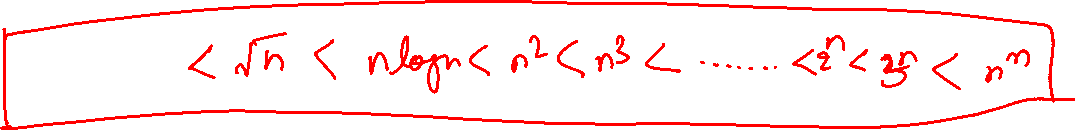 < √n < n log n < n² < n³ < ....... < 2ⁿ < 3ⁿ < nⁿ